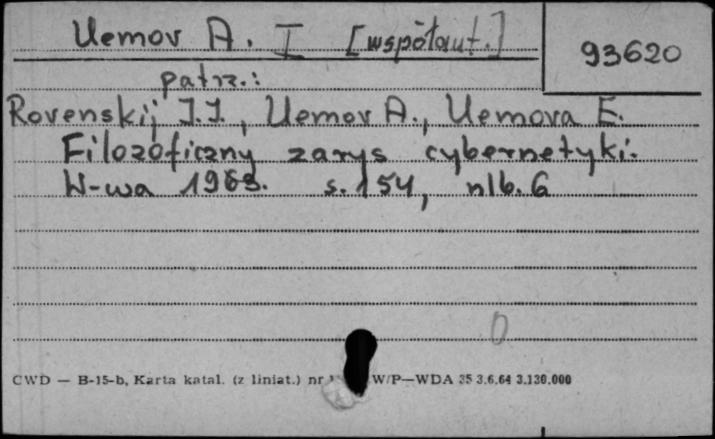 Uemov A. I [współaut.]
93620
patrz.:
Rovenskij J.J., Uemov A., Uemova E.
Filozoficzny zarys cybernetyki.
W-wa 1963. s. 154, nlb. 6
0
CWD — B-15-b, Karta katal. (z liniat.) nr W/P—WDA 35 3.6.64 3.130.000